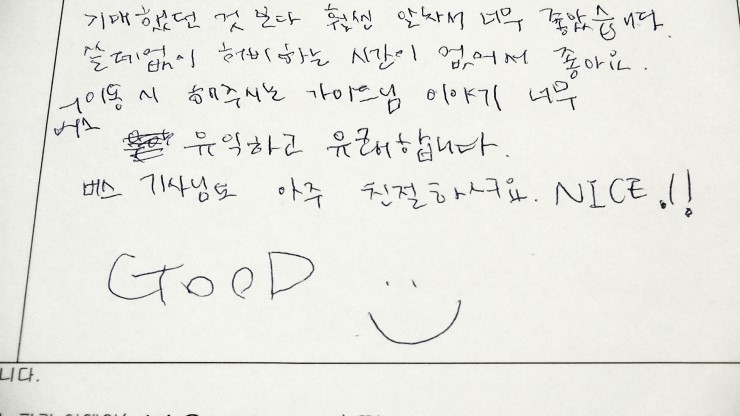 기대했던 것 보다 훨씬 알차서 너무 좋았습니다.
쓸데없이 허비하는 시간이 없어서 좋아요.
버스
이동 시 해주시는 가이드님 이야기 너무
유익하고 유쾌합니다.
버스 기사님도 아주 친절하시구요. NICE!!
GOOD
니다.